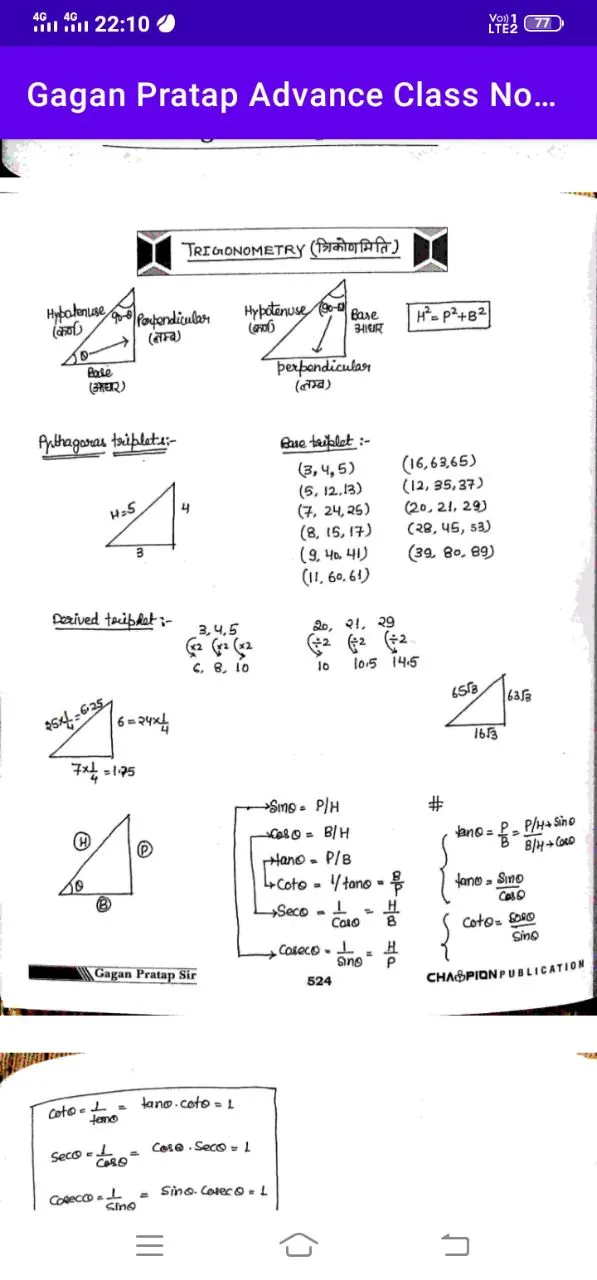 4G 4G 22:10 Vo)) 1 LTE2 77
Gagan Pratap Advance Class No...
TRIGONOMETRY (त्रिकोणमिति)
Hypotenuse
(कर्ण)
90-θ
Perpendicular
(लम्ब)
θ
Base
(आधार)
Hypotenuse
(कर्ण)
(90-θ)
Base
आधार
perpendicular
(लम्ब)
H²= P²+B²
Pythagoras triplets:-
H=5
4
3
Base triplet :-
(3, 4, 5)
(5, 12, 13)
(7, 24, 25)
(8, 15, 17)
(9, 40, 41)
(11, 60, 61)
(16, 63, 65)
(12, 35, 37)
(20, 21, 29)
(28, 45, 53)
(39, 80, 89)
Derived triplet :-
3, 4, 5
(×2 (×2 (×2
6, 8, 10
20, 21, 29
(÷2 (÷2 (÷2
10 10.5 14.5
25×1/4=6.25
6=24×1/4
7×1/4=1.75
65√3
63√3
16√3
H
P
θ
B
Sinθ = P/H
Cosθ = B/H
tanθ = P/B
Cotθ = 1/tanθ = B/P
Secθ = 1/Cosθ = H/B
Cosecθ = 1/Sinθ = H/P
#
tanθ = P/B = P/H→Sinθ / B/H→Cosθ
tanθ = Sinθ/Cosθ
Cotθ = Cosθ/Sinθ
Gagan Pratap Sir
524
CHAMPION PUBLICATION
Cotθ = 1/tanθ = tanθ.Cotθ = 1
Secθ = 1/Cosθ = Cosθ.Secθ = 1
Cosecθ = 1/Sinθ = Sinθ.Cosecθ = 1